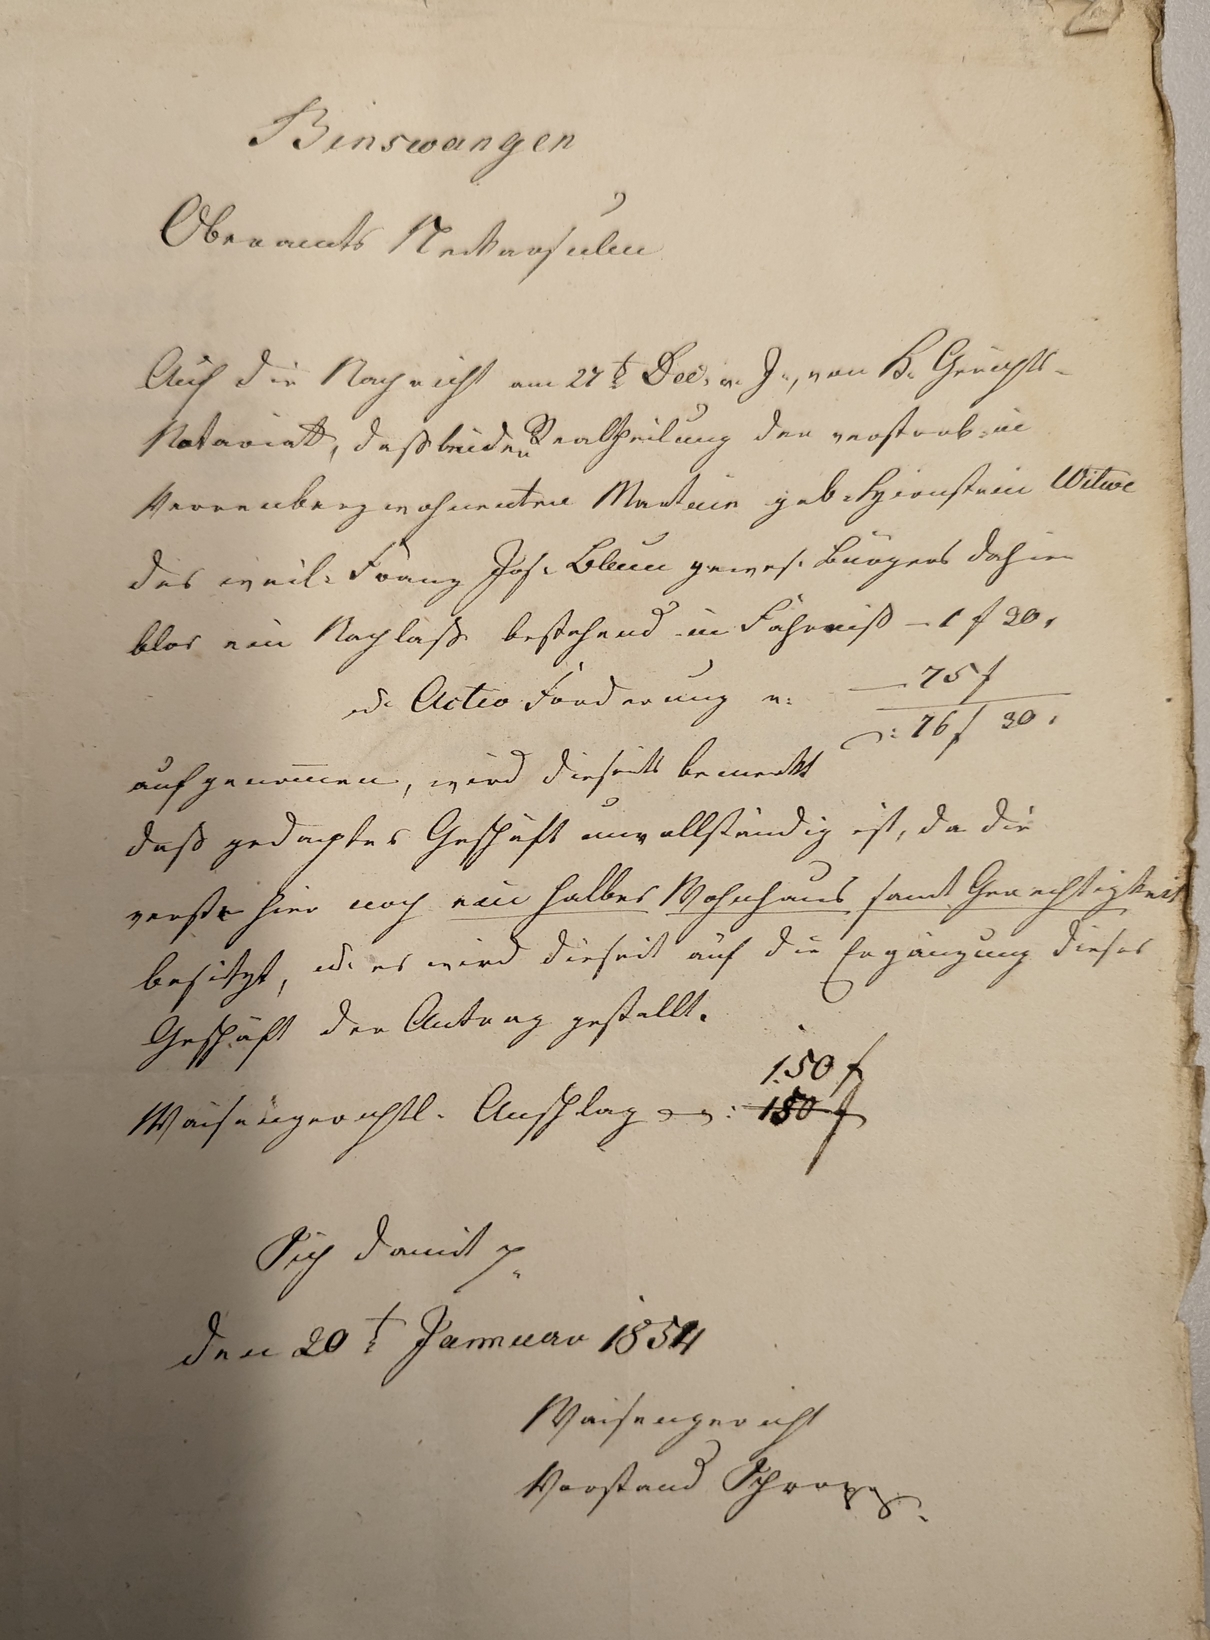 Binswangen
Oberamts Neckarsulm
Auf die Nachricht vom 27t Dec. v. J., von K. Gerichts-
Notariat, daß bei der Realtheilung der verstorb. in
Verrenberg wohnenden Martin geb. Witwe
des weil. Franz Jos. Blum gewes. Bürgers dahier
blos ein Nachlaß bestehend in Fahrniß – 1 f 30.
u. Activ Forderung v: — 75 f
: 76 f 30.
aufgenommen, wird dieseits bemerkt
daß gedachtes Geschäft unvollständig ist, da die
verst. hier noch ein halbes Wohnhaus samt Gerechtigkeit
besitzt, u. es wird dieseit auf die Ergänzung dieses
Geschäft der Antrag gestellt.
150 f
Waisengerichtl. Anschlag : 150 f
Sich damit p.
den 20t Januar 1854
Waisengericht
Vorstand